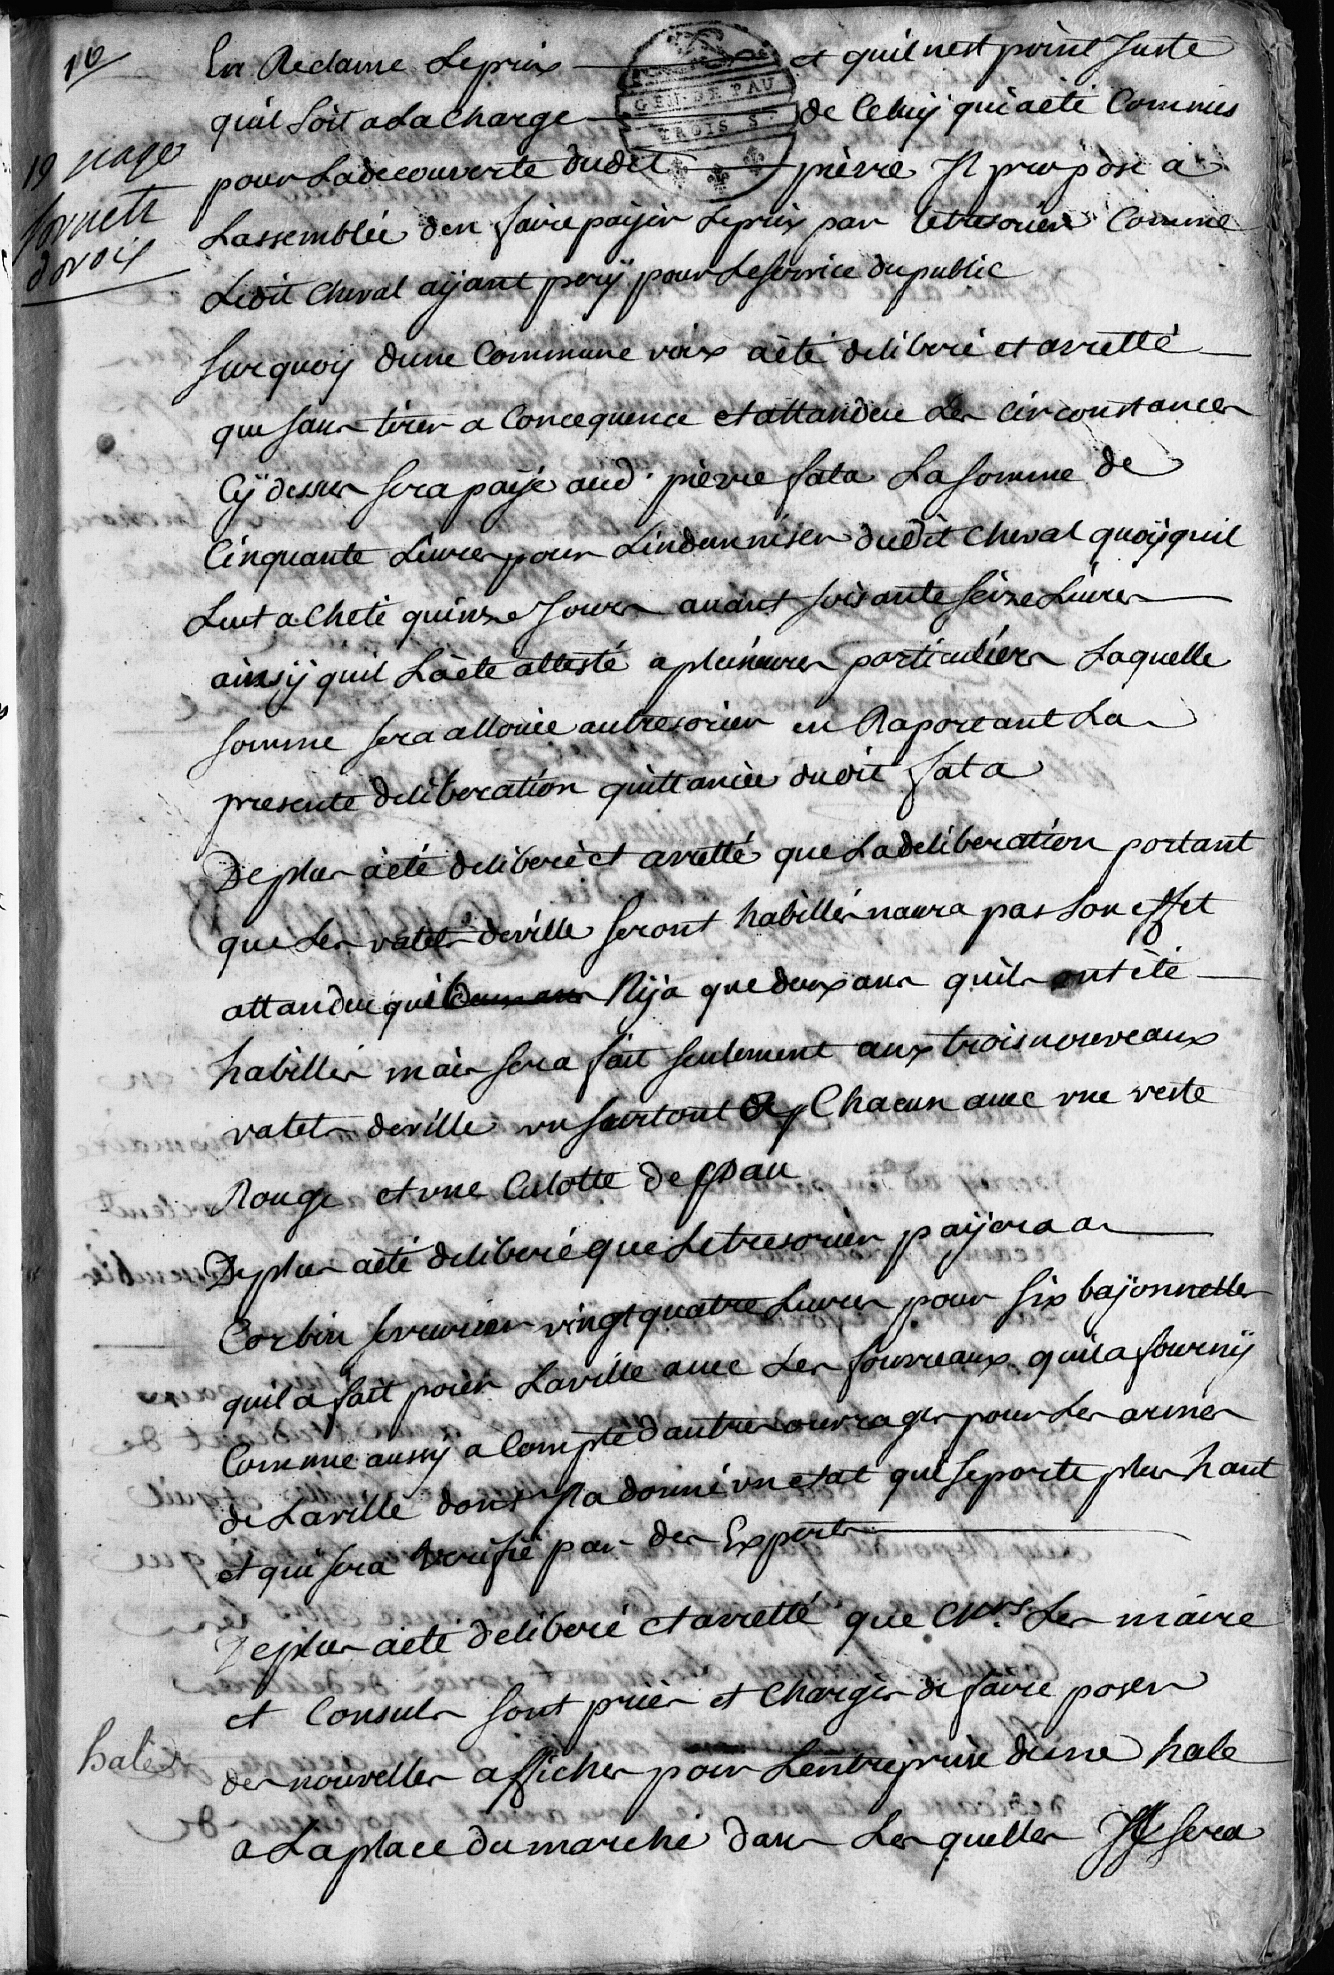 10
19 page
En Reclame Leprix et quil nest point Juste
GEN. DE PAU
TROIS S.
quil soit a La charge de Celuy qui a été Commis
pour La decouverte dudit pierre Il propose a
Lassemblée den faire payer Leprix par letresorier Comme
Ledit Cheval ayant pery pour Leservice du public
Sur quoy dune Commune voix aété deliberé et arretté
que sans tirer a Concequence et attandeu Les Circonstances
Cÿ dessus sera payé aud. pierre fata La somme de
Cinquante Livres pour Lindemniser dudit Cheval quoyquil
Leut acheté quinze Jours avant soisante seize Livres
ainsy quil La été attesté a pleusieurs particuliers Laquelle
somme sera allouée autresorier en Raportant La
presente deliberation quittancée dudit fata
Deplus aété deliberé et arretté que La deliberation portant
que Les valets deville seront habillés naura pas son effet
attandeu quil Nÿ a que deux ans quils ont été
habillés mais sera fait seulement aux trois nouveaux
valets deville un surtout Chacun avec une veste
Rouge et une Culotte de peau
Deplus aété deliberé que Letresorier payera a
Corbin serrurier vingt quatre Livres pour six bayonnettes
quil a fait pour Laville avec Les fourreaux quil a fourny
Comme aussy a Compte dautres ouvrages pour Les armes
de Laville dont Il a donné un etat qui se porte plus haut
et qui sera verifié par des Experts
Deplus aété deliberé et arretté que Mrs. Les maire
et Consuls sont priés et Chargés de faire poser
hale
des nouvelles affiches pour Lentreprise dune hale
a Laplace du marché dans Les quelles Il sera